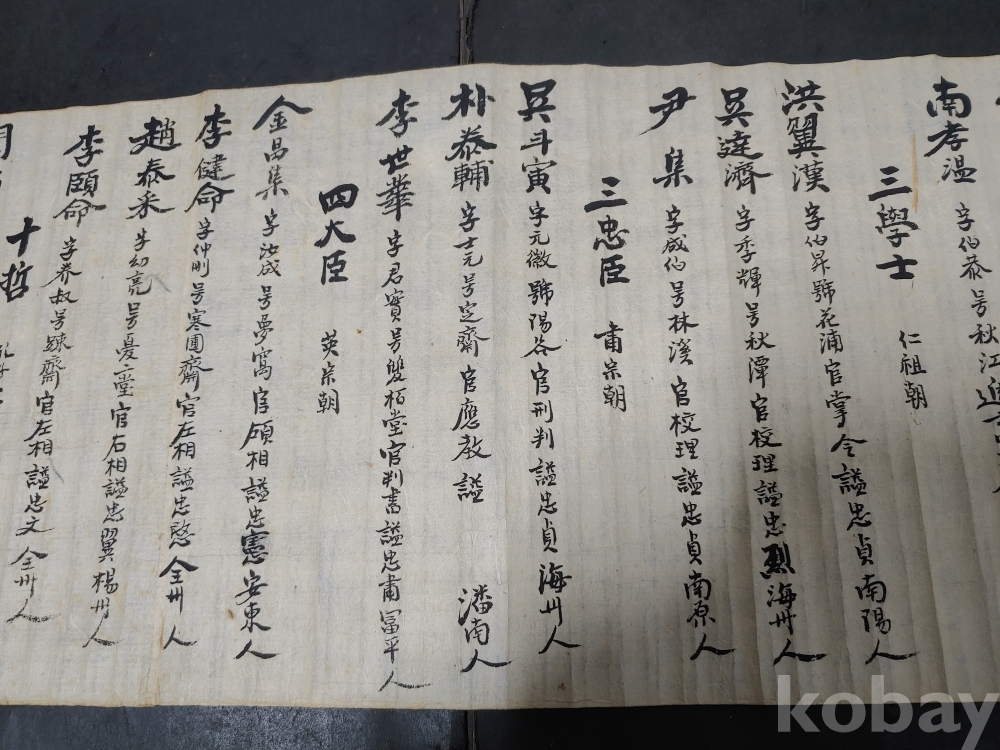 南孝温 字伯恭 号秋江 進士
三學士 仁祖朝
洪翼漢 字伯昇 號花浦 官掌令 謚忠貞 南陽人
吳達濟 字季輝 号秋潭 官校理 謚忠烈 海州人
尹集 字成伯 号林溪 官校理 謚忠貞 南原人
三忠臣 肅宗朝
吳斗寅 字元徵 號陽谷 官刑判 謚忠貞 海州人
朴泰輔 字士元 号定齋 官應教 謚 潘南人
李世華 字君實 号雙栢堂 官判書 謚忠肅 冨平人
四大臣 英宗朝
金昌集 字汝成 号夢窩 官領相 謚忠憲 安東人
李健命 字仲剛 号寒圃齋 官左相 謚忠愍 全州人
趙泰采 字幼亮 号憂二堂 官右相 謚忠翼 楊州人
李頤命 字养叔 号疎齋 官左相 謚忠文 全州人
十哲